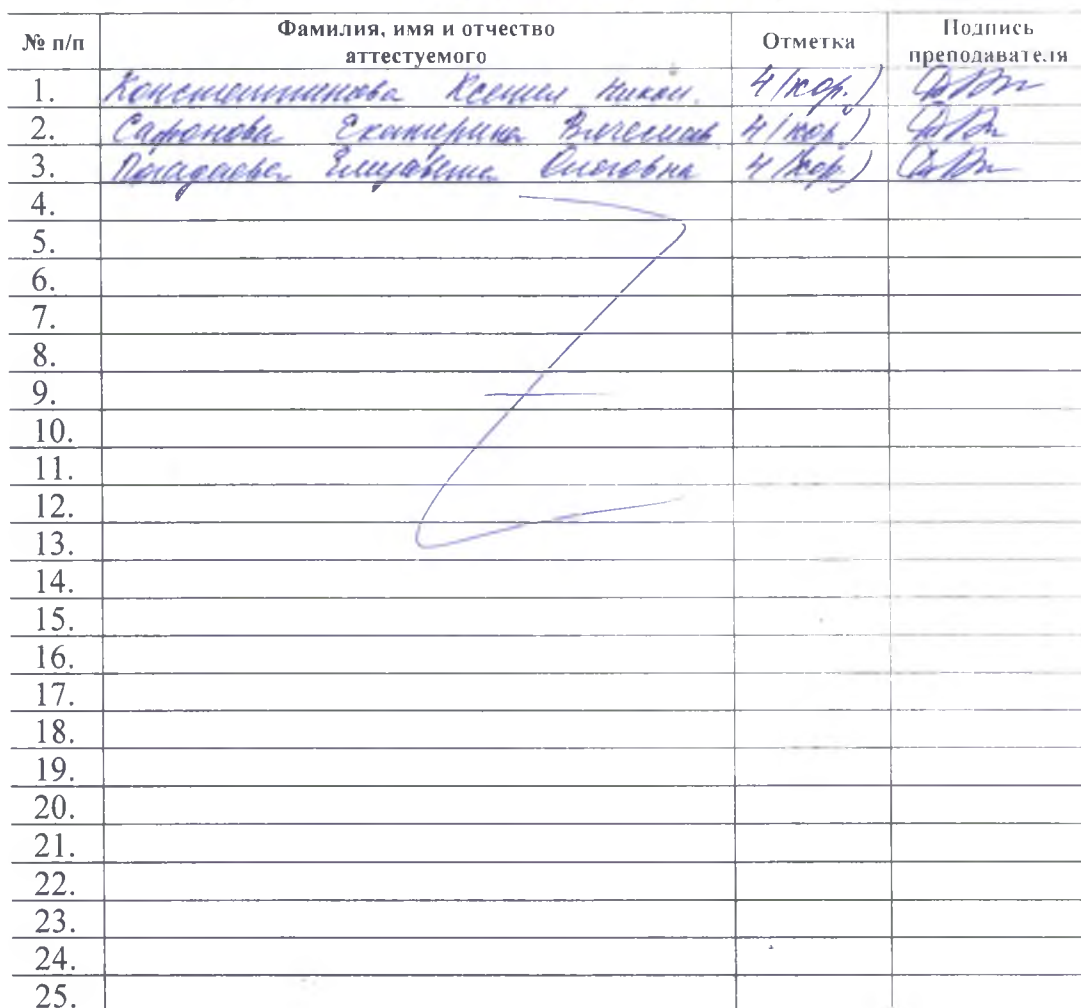 № п/п Фамилия, имя и отчество аттестуемого Отметка Подпись преподавателя
1. Константинова Ксения Никол. 4 (хор.)
2. Сафонова Екатерина Вячеслав 4 (хор.)
3. Погадаева Елизавета Олеговна 4 (хор.)
4.
5.
6.
7.
8.
9.
10.
11.
12.
13.
14.
15.
16.
17.
18.
19.
20.
21.
22.
23.
24.
25.